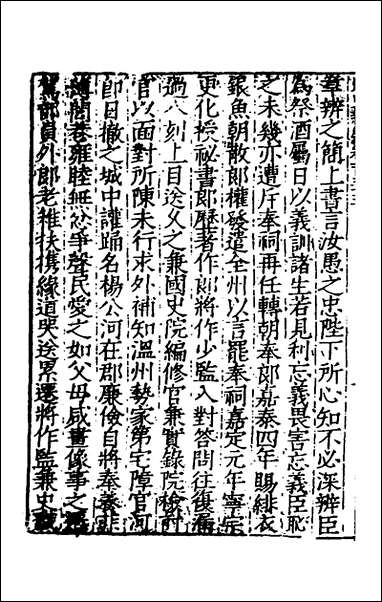 章辨之簡上書言汝愚之忠陛下所心知不必深辨臣
為祭酒屬日以義訓諸生若見利忘義畏害忘義臣恥
之未幾亦遭斥奉祠再任轉朝奉郎嘉泰四年賜緋衣
銀魚朝散郎權發遣全州以言罷奉祠嘉定元年寧宗
更化授祕書郎歷著作郎將作少監入對答問往復漏
過八刻上目送父之兼國史院編修官兼實錄院檢討
官以面對所陳未行求外補知溫州勢家第宅障官河
即日撤之城中讙踊名楊公河在郡廉儉自將奉養菲
薄閭巷雍睦無忿爭聲民愛之如父母咸畫像事之遷
駕部員外郎老稚扶攜緣道哭送累遷將作監兼史